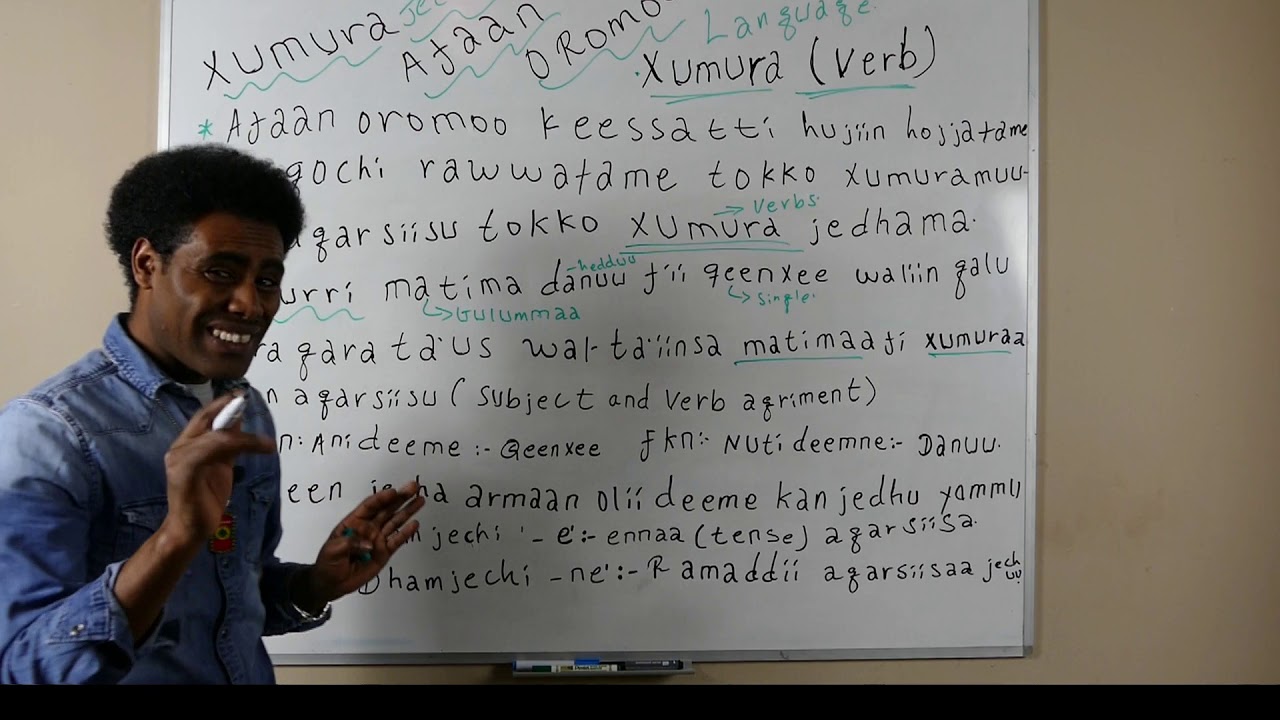 xumura jechoota Afaan Oromoo Language.
xumura (verb)
* Afaan oromoo keessatti hujiin hojjatame
gochi rawwatame tokko xumuramuu-
agarsiisu tokko xumura jedhama.
→ verbs.
urri matima danuu fii qeenxee waliin galu
-hedduu
→ Gulummaa
→ Single.
ra qara ta'us wal-ta'iinsa matimaafi xumuraa
n agarsiisu (subject and verb agriment)
n: Ani deeme :- Qeenxee fkn:- Nuti deemne:- Danuu.
een jecha armaan olii deeme kan jedhu yammu
jechi '-e':- ennaa (tense) agarsiisa.
Dhamjechi -ne':- Ramaddii agarsiisaa jechuu.